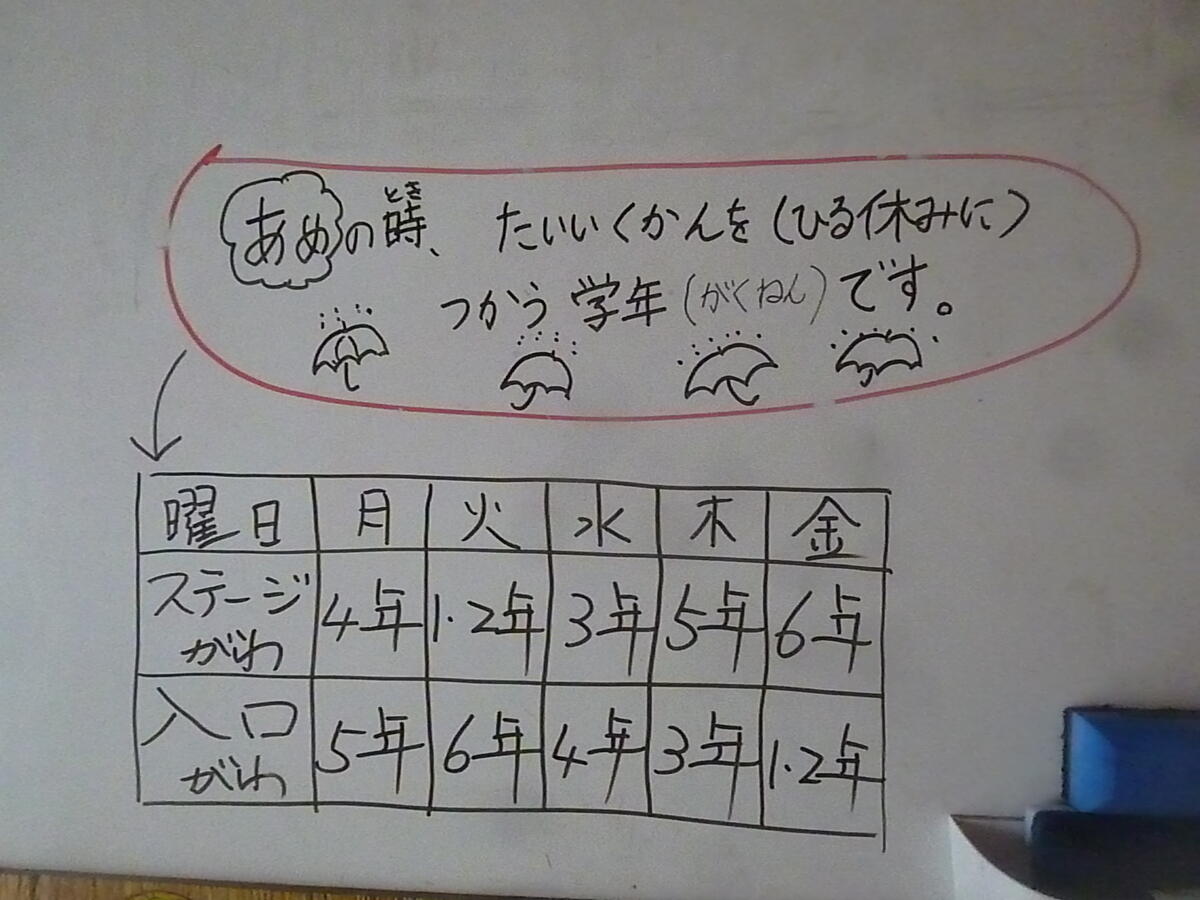 あめの時、 たいいくかんを(ひる休みに)
とき
つかう学年(がくねん)です。
曜日 月 火 水 木 金
ステージがわ 4年 1.2年 3年 5年 6年
入口がわ 5年 6年 4年 3年 1.2年